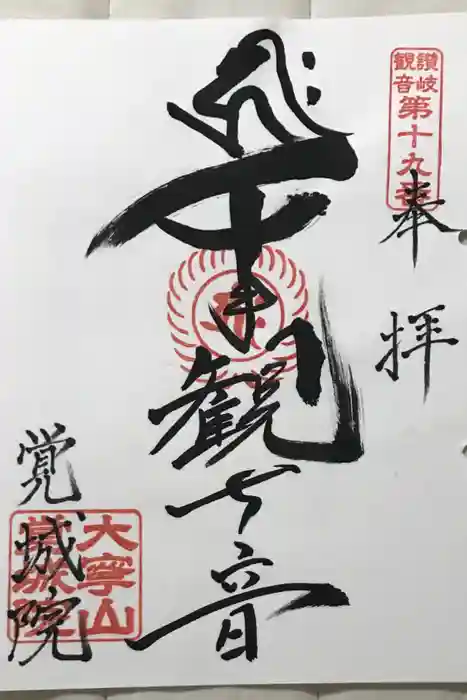 讃岐
観音
第十九番
奉拝
千手観世音
大寧山
覚城院
覚城院